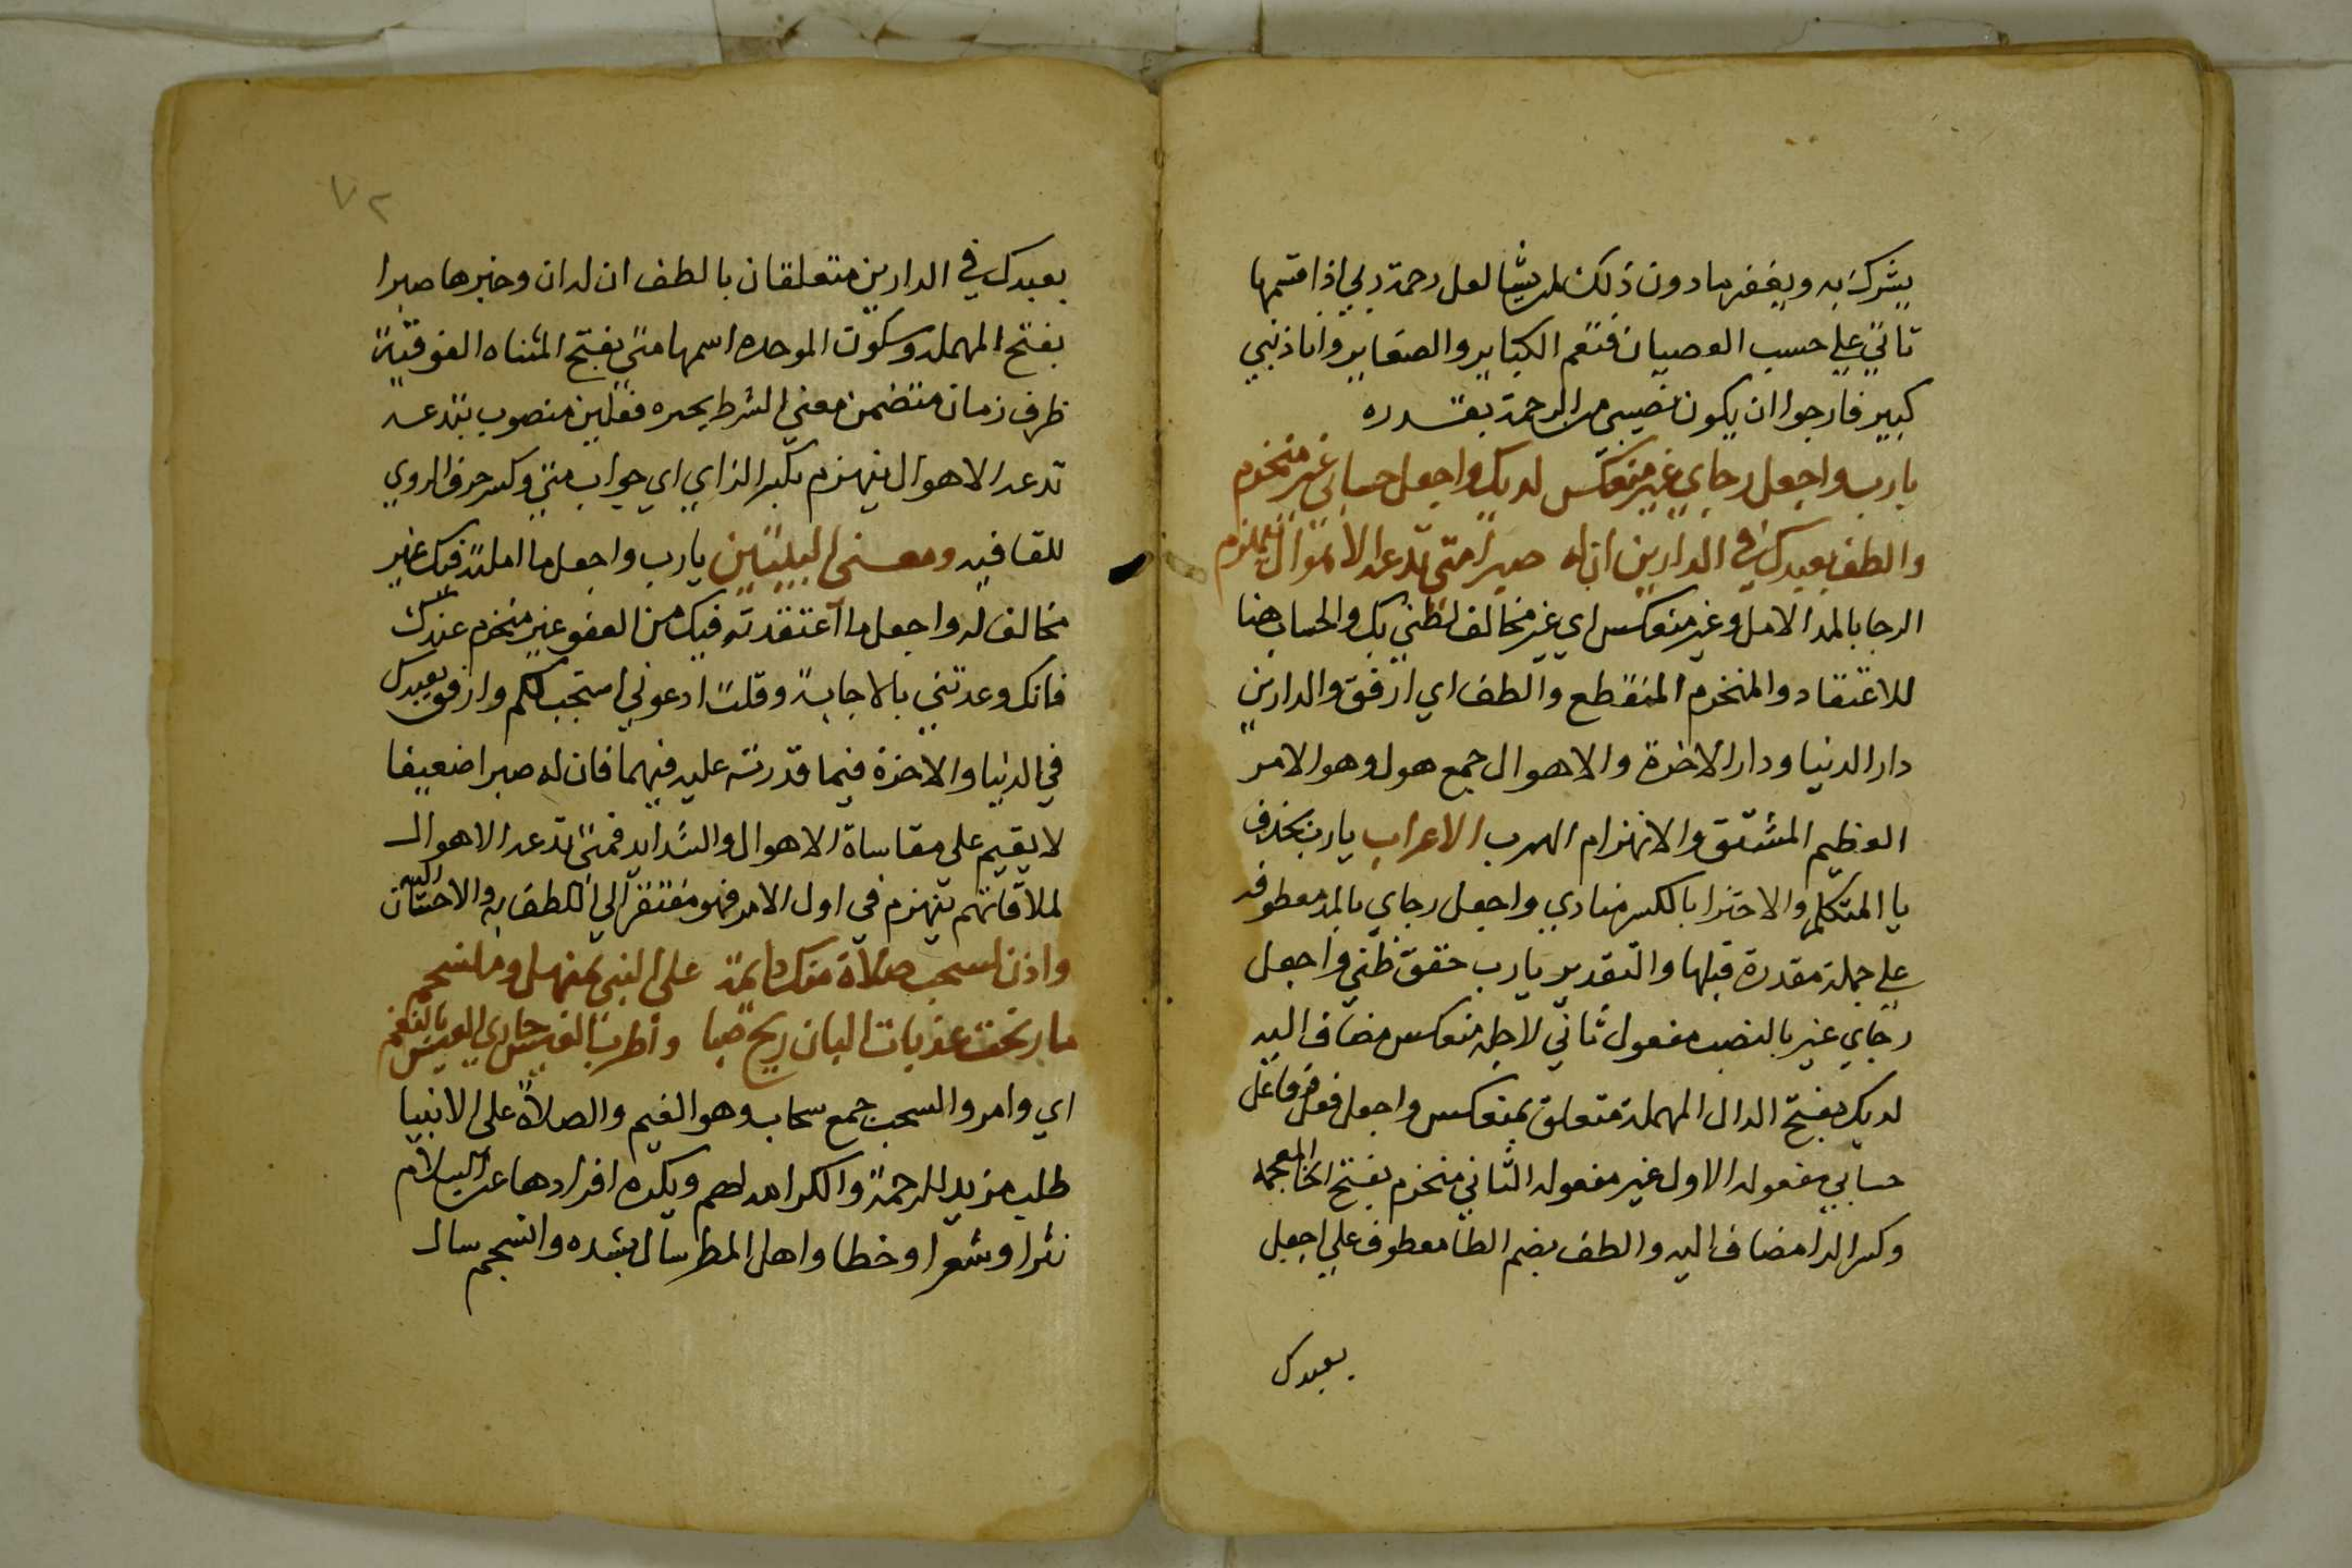 يشرك به ويغفر ما دون ذلك لمن يشا لعل رحمة ربي اذا قسمها
تاتي علي حسب العصيان فتعم الكباير والصغاير وانا ذنبي
كبير فارجوا ان يكون نصيبي من الرحمة بقدره
يارب واجعل رجاي غير منعكس لديك واجعل حسابي غير منخرم
والطف بعبدك في الدارين ان له صبرا متي تدعه الاهوال ينهزم
الرجا بالمد الامل وغير منعكس اي غير مخالف لظني بك والحساب هنا
للاعتقاد والمنخرم المنقطع والطف اي ارفق والدارين
دار الدنيا ودار الاخرة والاهوال جمع هول وهو الامر
العظيم المشق والانهزام الهرب الاعراب يارب بحذف
يا المتكلم والاجتزا بالكسر منادي واجعل رجاي بالمد معطوفه
علي جملة مقدرة قبلها والتقدير يارب حقق ظني واجعل
رجاي غير بالنصب مفعول ثاني لاجعل منعكس مضاف اليه
لديك بفتح الدال المهملة متعلق بمنعكس واجعل فعل وفاعل
حسابي مفعوله الاول غير مفعوله الثاني منخرم بفتح الخا المعجمه
وكسر الرا مضاف اليه والطف بضم الطا معطوف علي اجعل
بعبدك
٧٢
بعبدك في الدارين متعلقان بالطف ان له ان وخبرها صبرا
بفتح المهمله وسكون الموحده اسمها متي بفتح المثناه الفوقية
ظرف زمان متضمن معني الشرط يجزم فعلين منصوب بتدعه
تدعه الاهوال ينهزم بكسر الزاي اي جواب متي وكسر حرف الروي
للقافيه ومعني البيتين يارب واجعل ما املته فيك غير
مخالف له واجعل ما اعتقدته فيك من العفو غير منخرم عندك
فانك وعدتني بالاجابة وقلت ادعوني استجب لكم وارفق بعبدك
في الدنيا والاخرة فيما قدرته عليه فيهما فان له صبرا ضعيفا
لا يقيم علي مقاساة الاهوال والشدايد فمتي تدعه الاهوال
لملاقاتهم ينهزم في اول الامر فهو مفتقر الي اللطف به والاحسان اليه
واذن لسحب صلاة منك دايمة علي النبي بمنهل ومنسجم
ما رنحت عذبات البان ريح صبا واطرب العيس حادي العيس بالنغم
اي وامر والسحب جمع سحاب وهو الغيم والصلاة علي الانبيا
طلب مزيد الرحمة والكرامه لهم ويكره افرادها عن السلام
نثرا وشعرا وخطا واهل المطر سال بشده وانسجم سال